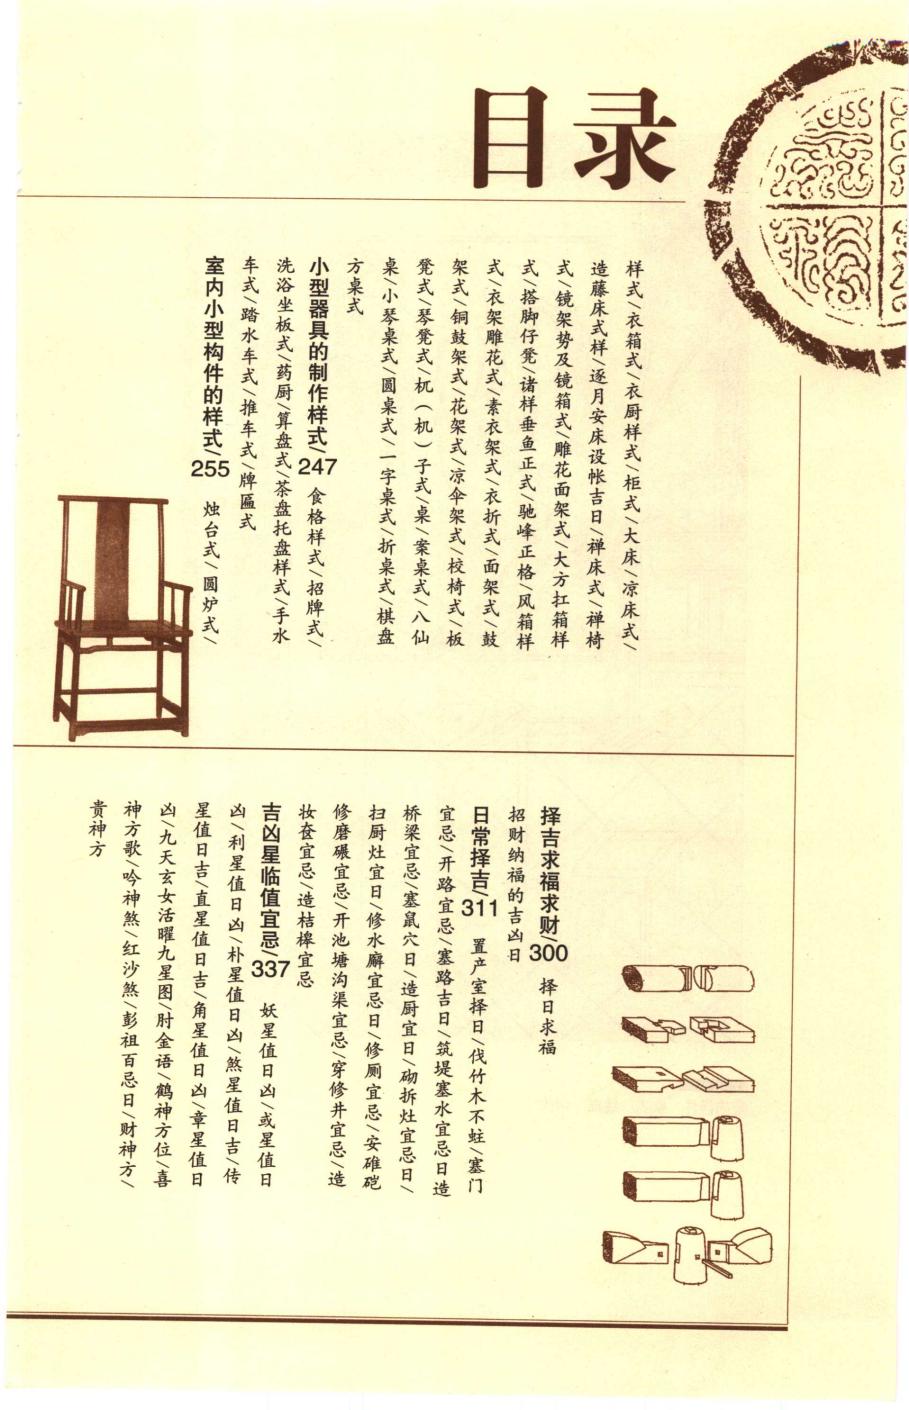 目录
样式/衣箱式/衣厨样式/柜式/大床/凉床式/
造藤床式样/逐月安床设帐吉日/禅床式/禅椅
式/镜架势及镜箱式/雕花面架式/大方扛箱样
式/搭脚仔凳/诸样垂鱼正式/驰峰正格/风箱样
式/衣架雕花式/素衣架式/衣折式/面架式/鼓
架式/铜鼓架式/花架式/凉伞架式/校椅式/板
凳式/琴凳式/杌（机）子式/桌/案桌式/八仙
桌/小琴桌式/圆桌式/一字桌式/折桌式/棋盘
方桌式
小型器具的制作样式/247 食格样式/招牌式/
洗浴坐板式/药厨/算盘式/茶盘托盘样式/手水
车式/踏水车式/推车式/牌匾式
室内小型构件的样式/255 烛台式/圆炉式/
择吉求福求财/300 择日求福
招财纳福的吉凶日
日常择吉/311 置产室择日/伐竹木不蛀/塞门
宜忌/开路宜忌/塞路吉日/筑堤塞水宜忌日造
桥梁宜忌/塞鼠穴日/造厨宜日/砌拆灶宜忌日/
扫厨灶宜日/修水廨宜忌日/修厕宜忌/安碓硙
修磨碾宜忌/开池塘沟渠宜忌/穿修井宜忌/造
妆奁宜忌/造桔槔宜忌
吉凶星临值宜忌/337 妖星值日凶/或星值日
凶/利星值日凶/朴星值日凶/煞星值日吉/传
星值日吉/直星值日吉/角星值日凶/章星值日
凶/九天玄女活曜九星图/肘金语/鹤神方位/喜
神方歌/吟神煞/红沙煞/彭祖百忌日/财神方/
贵神方